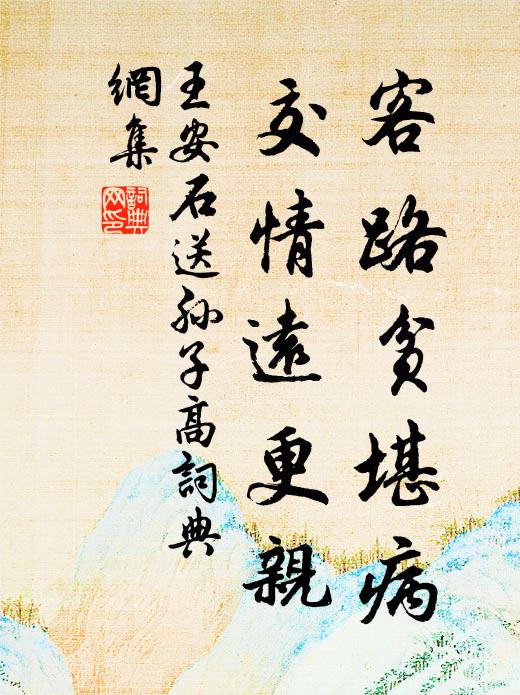 客路貧堪病
交情遠更親
王安石送孫子高詞典
網集
詞典
網印